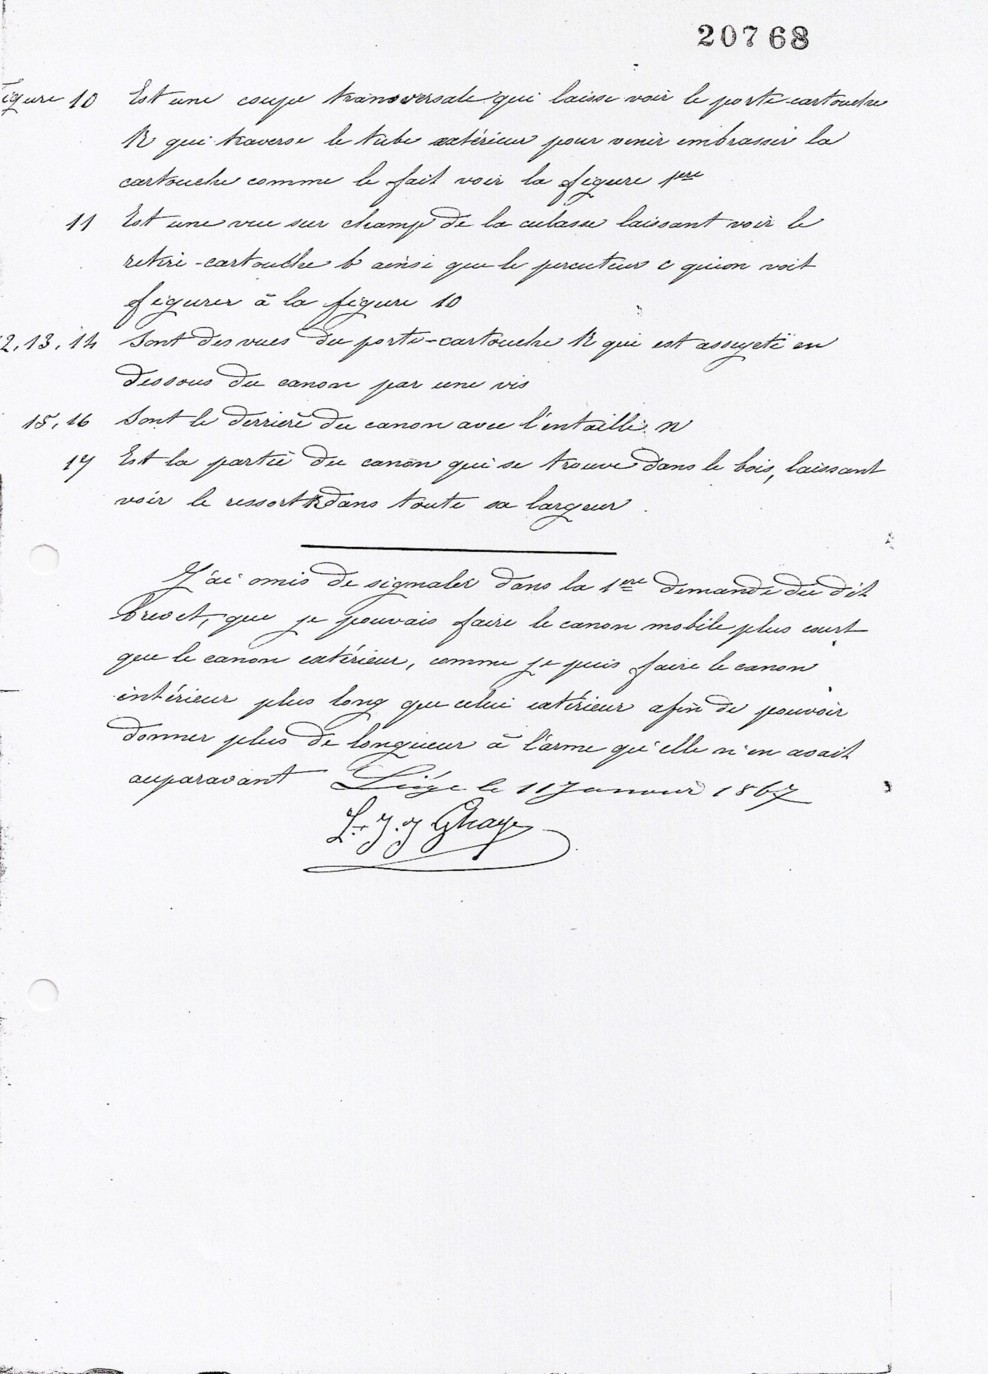 20768
Figure 10 Est une coupe transversale qui laisse voir le porte-cartouche
R qui traverse le tube extérieur pour venir embrasser la
cartouche comme le fait voir la figure 1ere
11 Est une vue sur champ de la culasse laissant voir le
retire-cartouche b ainsi que le percuteur c qu'on voit
figurer à la figure 10
12, 13, 14 Sont des vues du porte-cartouche R qui est assujeti en
dessous du canon par une vis
15, 16 Sont le derrière du canon avec l'entaille n
17 Est la partie du canon qui se trouve dans le bois, laissant
voir le ressort k dans toute sa largeur.
J'ai omis de signaler dans la 1ere demande du dit
brevet, que je pouvais faire le canon mobile plus court
que le canon extérieur, comme je puis faire le canon
intérieur plus long que celui extérieur afin de pouvoir
donner plus de longueur à l'arme qu'elle n'en avait
auparavant Liége le 11 Janvier 1867
L. J. J Ghaye